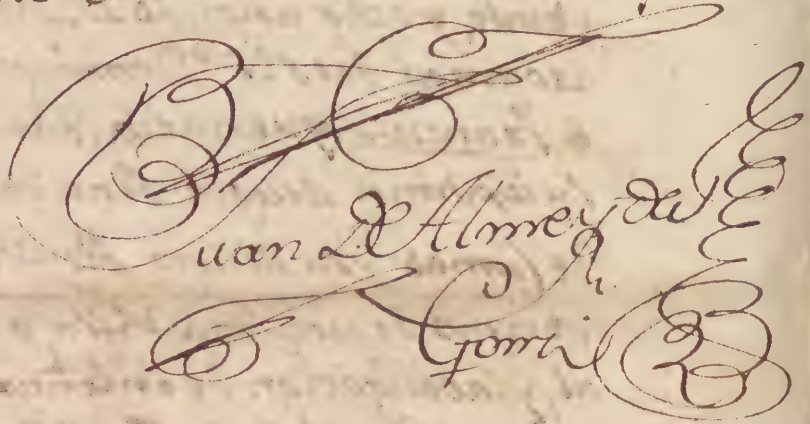 Juan De Almeyda
Gomi